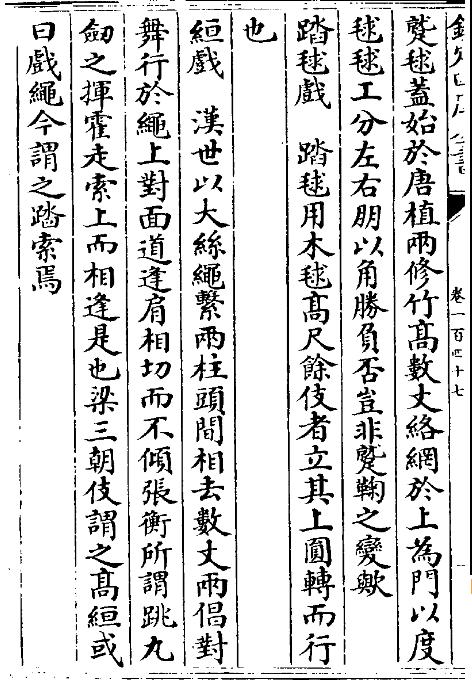 欽定四庫全書
卷一百四十七
蹙毬蓋始於唐植兩修竹髙數丈絡網於上為門以度
毬毬工分左右朋以角勝負否豈非蹙鞠之變歟
踏毬戲　踏毬用木毬髙尺餘伎者立其上圓轉而行
也
絙戲　漢世以大絲繩繫兩柱頭間相去數丈兩倡對
舞行於繩上對面道逢肩相切而不傾張衡所謂跳丸
劒之揮霍走索上而相逢是也梁三朝伎謂之髙絙或
曰戲繩今謂之踏索焉